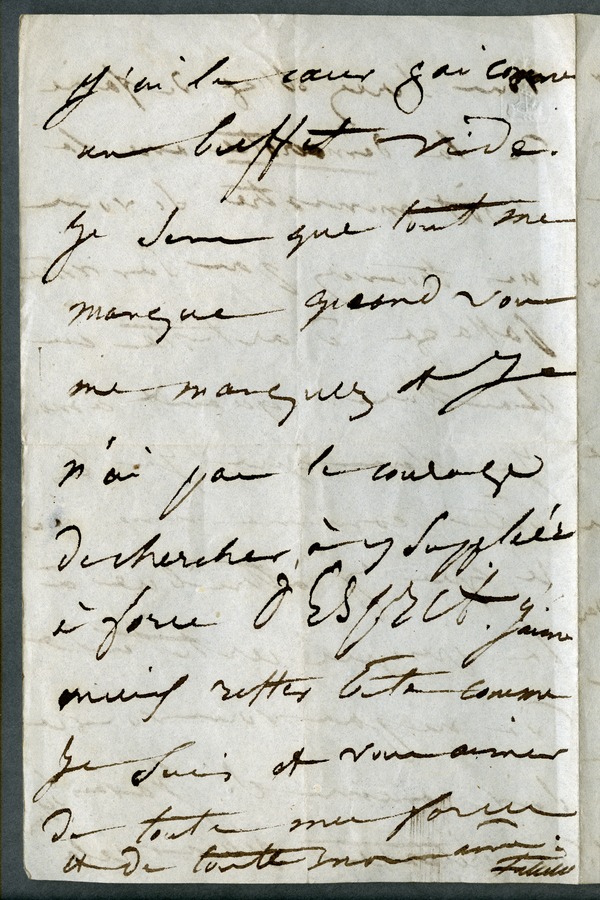 j'ai le cœur gai comme
un buffet vide.
Je sens que tout me
manque quand vous
me manquez et Je
n'ai pas le courage
de chercher, à y suppléer
à force d'ESPRIT. j'aime
mieux rester bête comme
Je suis et vous aimer
de toutes mes forces
et de toute mon âme.
Juliette